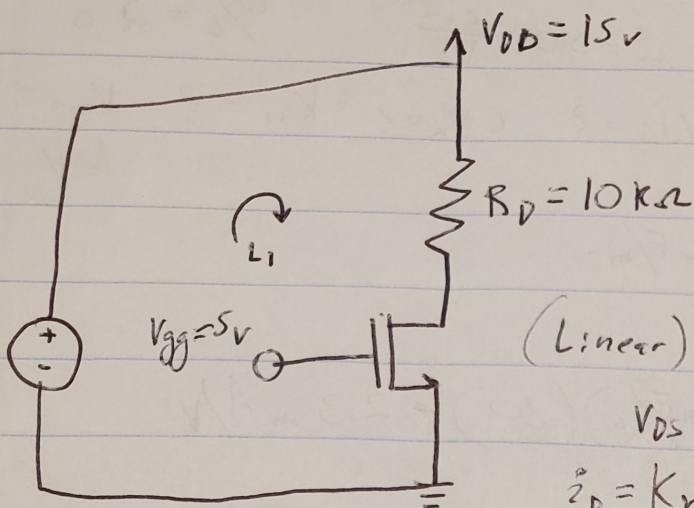 V_DD = 15v
R_D = 10 KΩ
L1
Vgg=5v
+
-
(Linear)
V_DS
i_D = K